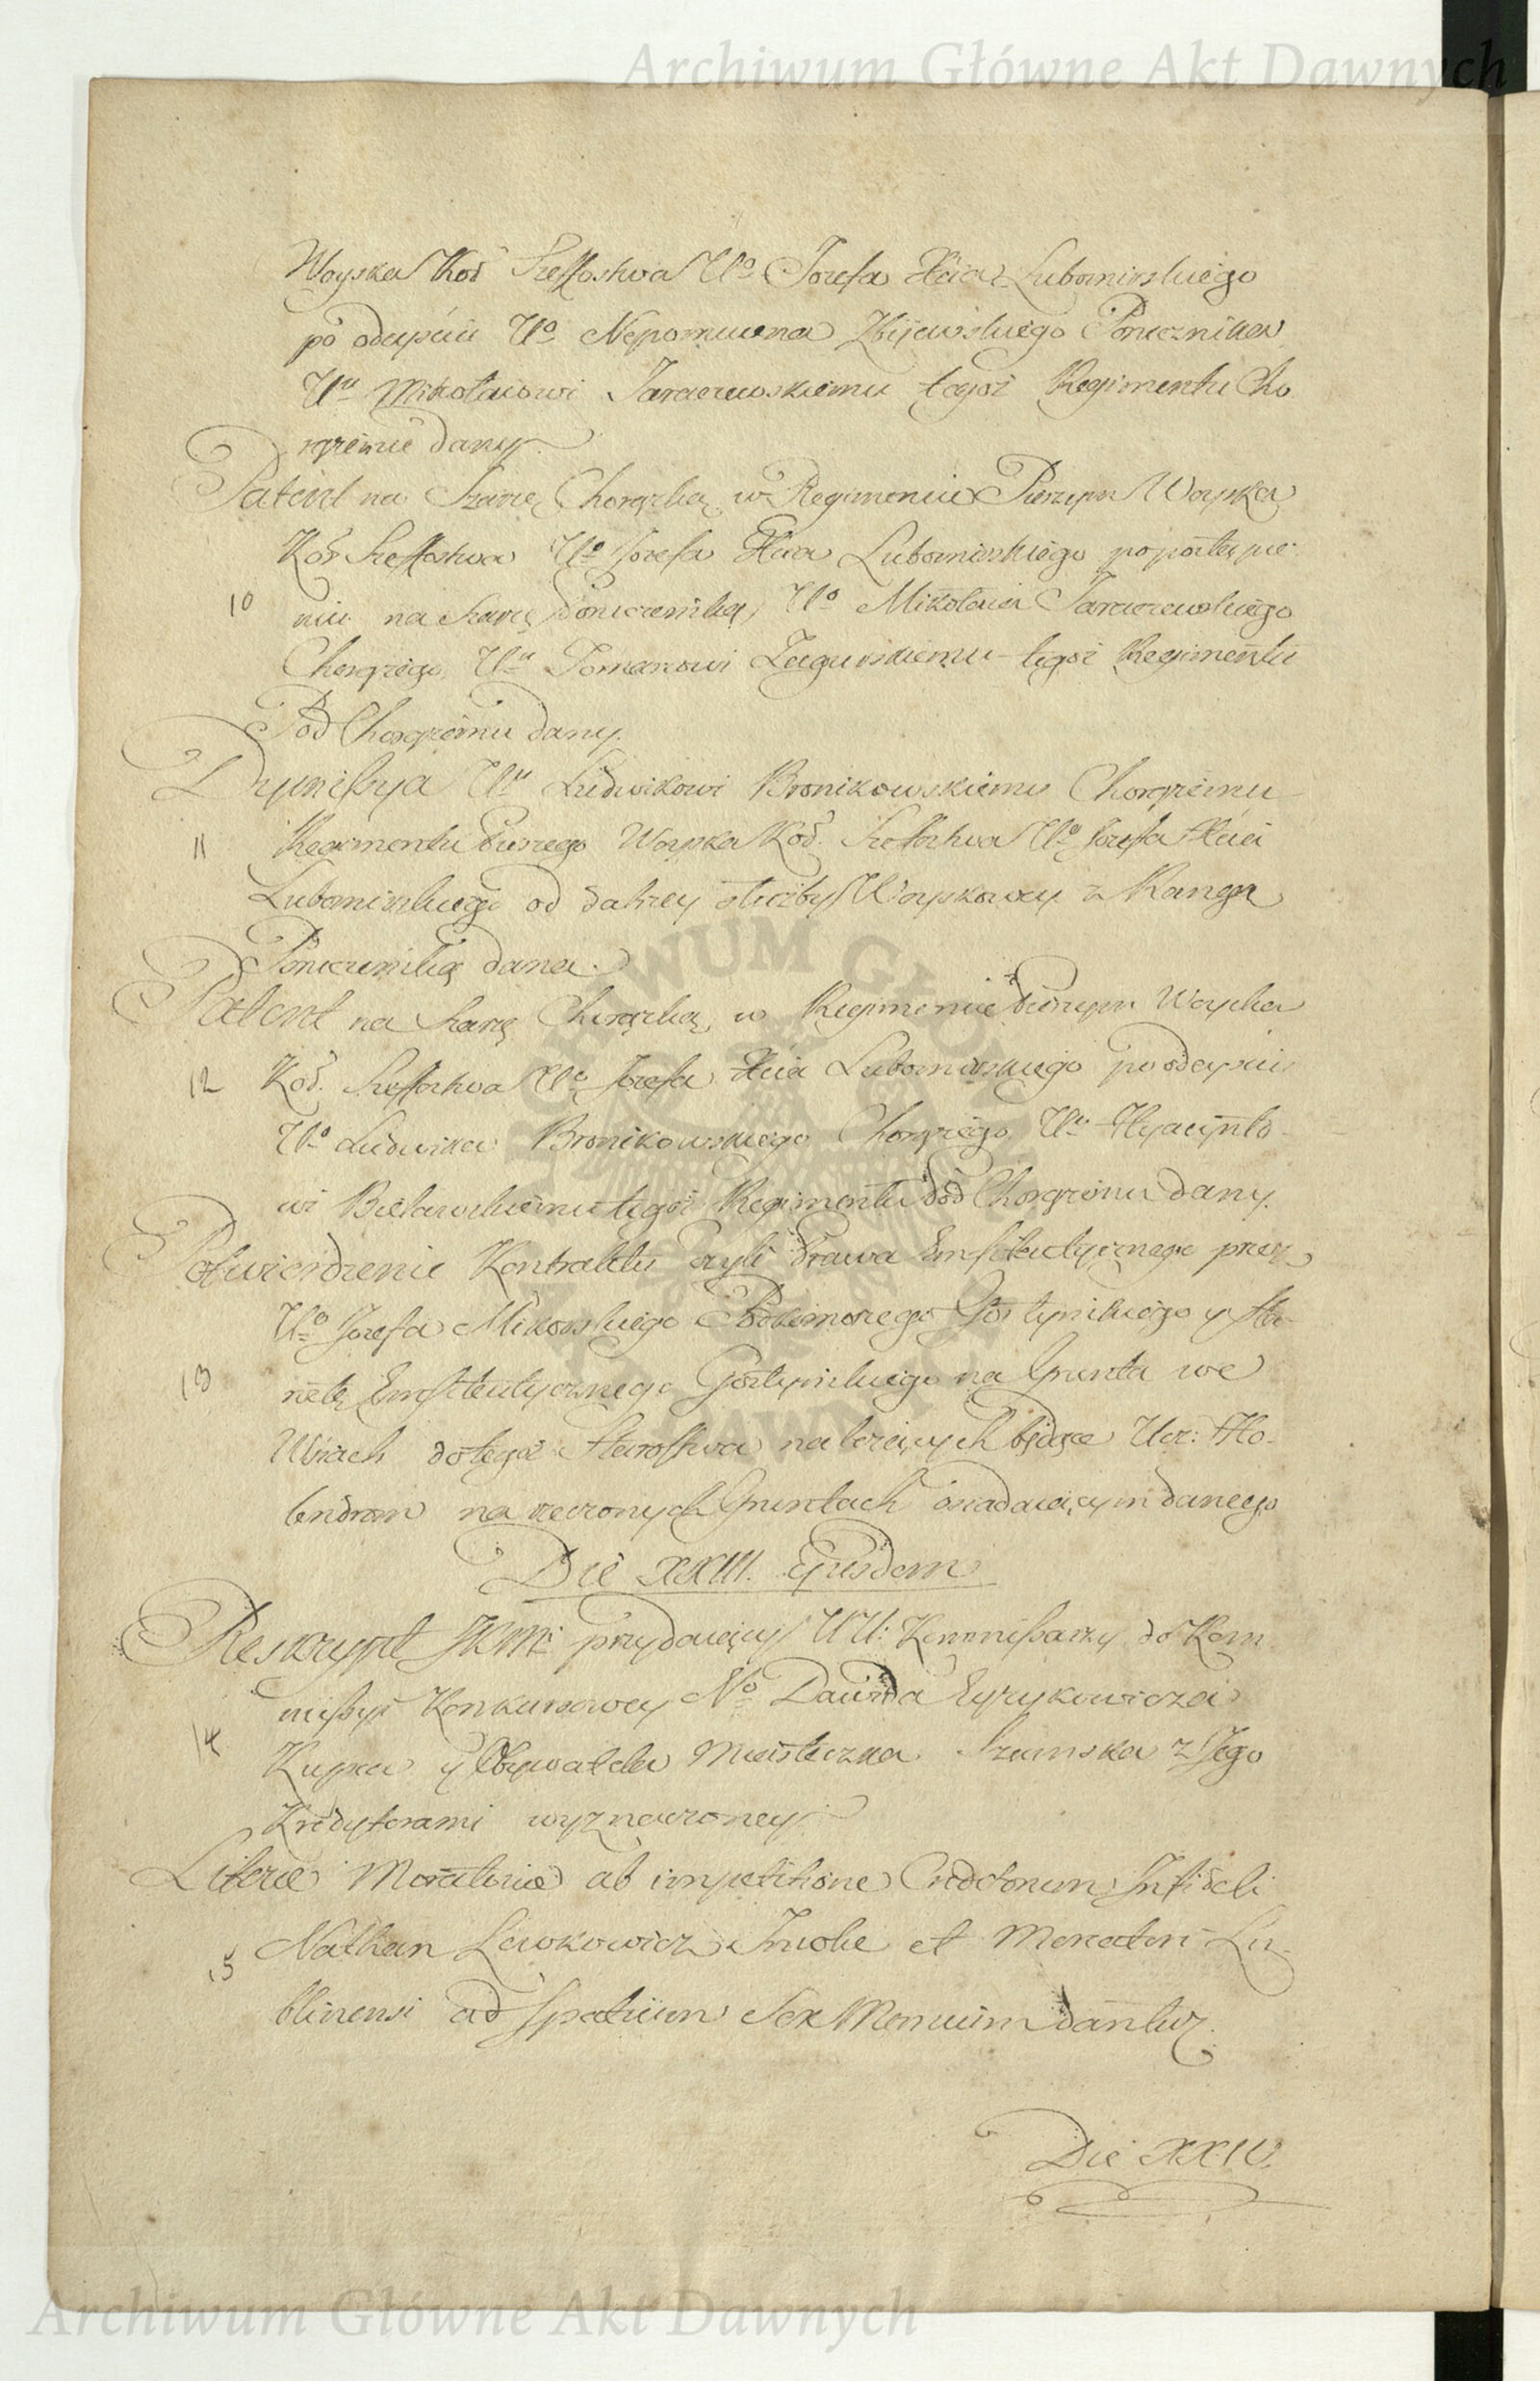 Archiwum Główne Akt Dawnych
Woyska Koo Szeffostwa Uo Jozefa Xcia Lubomirskiego
po odeyściu Uo Nepomucena Zbijewskiego Porucznika
Uu Mikołaiowi Taraczewskiemu tegoż Regimentu Cho
rążemu dany.
Patent na Szarżę Chorążką w Regimencie Pieszym Woyska
Koo Szeffostwa Uo Jozefa Xcia Lubomirskiego po postąpie
10 niu na Szarżę Poruczniką Uo Mikołaia Taraczewskiego
Chorążego, Uu Tomaszowi tegoż Regimentu
Pod Chorążemu dany.
Dymissya Uu Ludwikowi Bronikowskiemu Chorążemu
11 Regimentu Pieszego Woyska Koo. Szeffostwa Uo Jozefa Xcia
Lubomirskiego od dalszey służby Woyskowey z Rangą
Poruczniką dana.
Patent na Szarżę Chorążką w Regimencie Pieszym Woyska
12 Koo. Szeffostwa Uo Jozefa Xcia Lubomirskiego po odeyściu
Uo Ludwika Bronikowskiego Chorążego, Uu Hyacynto-
wi Bielawskiemu tegoż Regimentu Pod Chorążemu dany.
Potwierdzenie Kontraktu czyli Prawa Emfiteutycznego przez
Uo Jozefa Mikorskiego Podkomorzego Gostynskiego y Sta-
13 rostę Emfiteutycznego Gostynskiego na Grunta we
Wsiach do tegoż Starostwa należących będące Ucz: Ho-
lendrom na rzeczonych Gruntach osiadaiącym danego
Die XXIII. Ejusdem
Reskrypt JKMci przydaiący UU: Kommissarzy do Kom
14 missyi Konkursowey No Dawida Eyrykowicza
Kupca y Obywatela Miasteczka Szumska z Jego
Kredytorami wyznaczoney.
Literae Moratoriae ab impetitione Creditorum Infideli
15 Nathan Lewkowicz Incolae et Mercatori Lu-
blinensi ad spatium Sex Mensium dantur.
Die XXIV.
Archiwum Główne Akt Dawnych